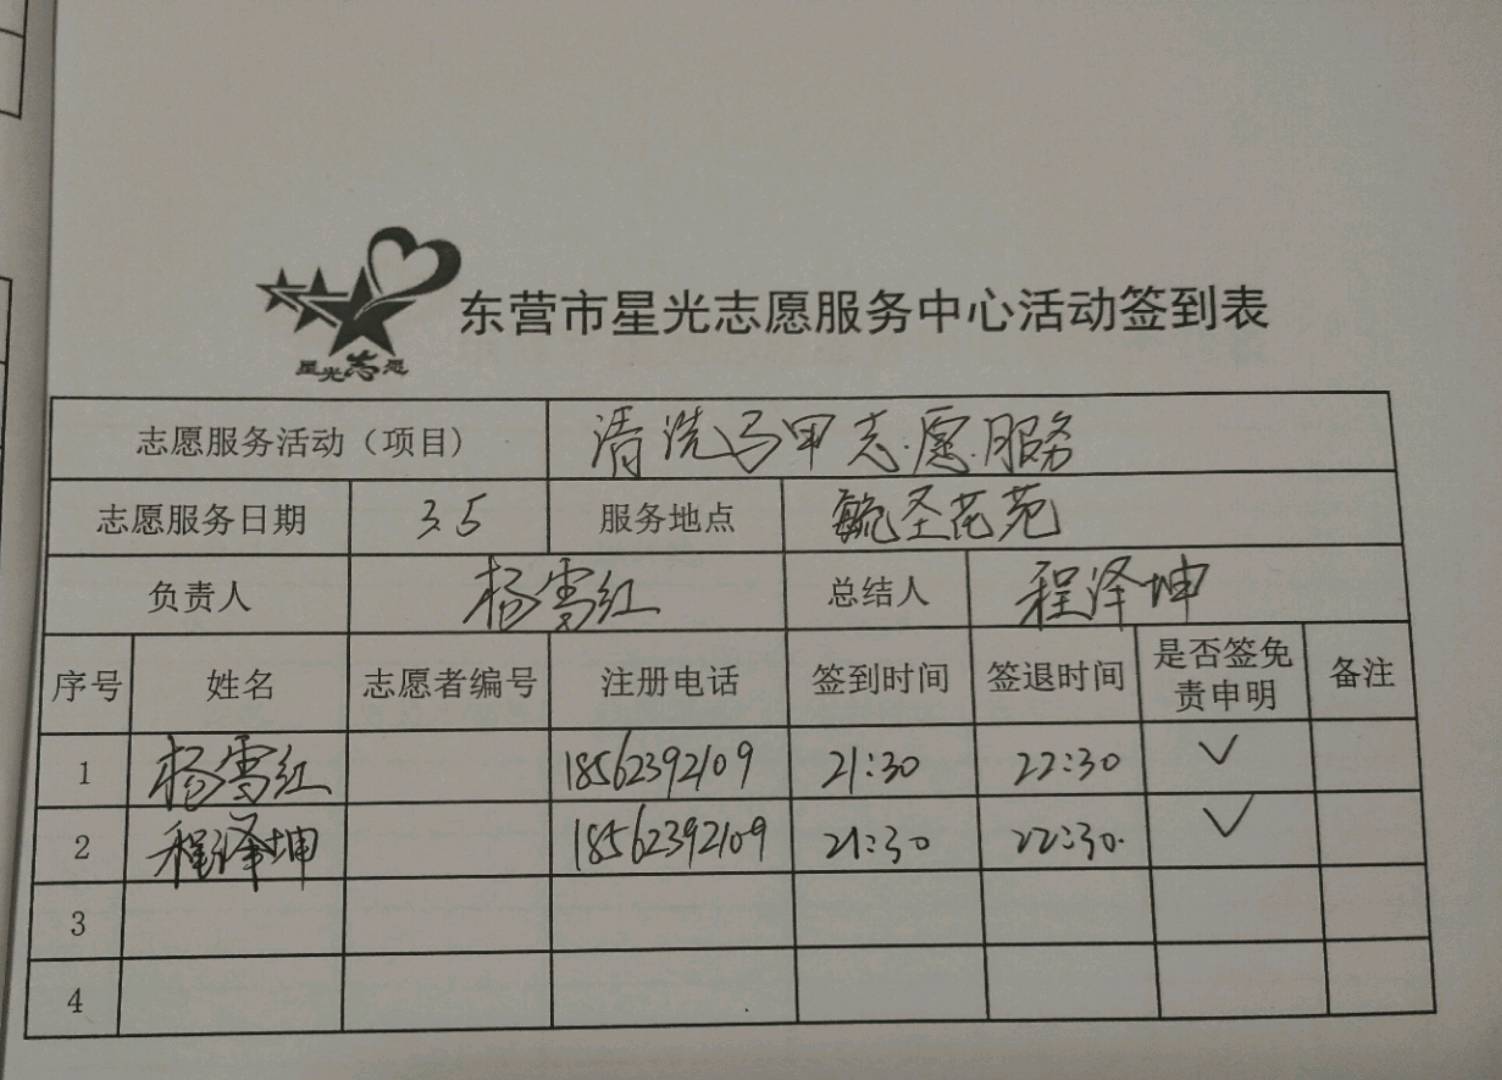 星光志愿
东营市星光志愿服务中心活动签到表
志愿服务活动（项目） 清洗马甲志愿服务
志愿服务日期 3.5 服务地点 毓圣花苑
负责人 杨雪红 总结人 程泽坤
序号 姓名 志愿者编号 注册电话 签到时间 签退时间 是否签免责申明 备注
1 杨雪红 18562392109 21:30 22:30 ✓
2 程泽坤 18562392109 21:30 22:30. ✓
3
4